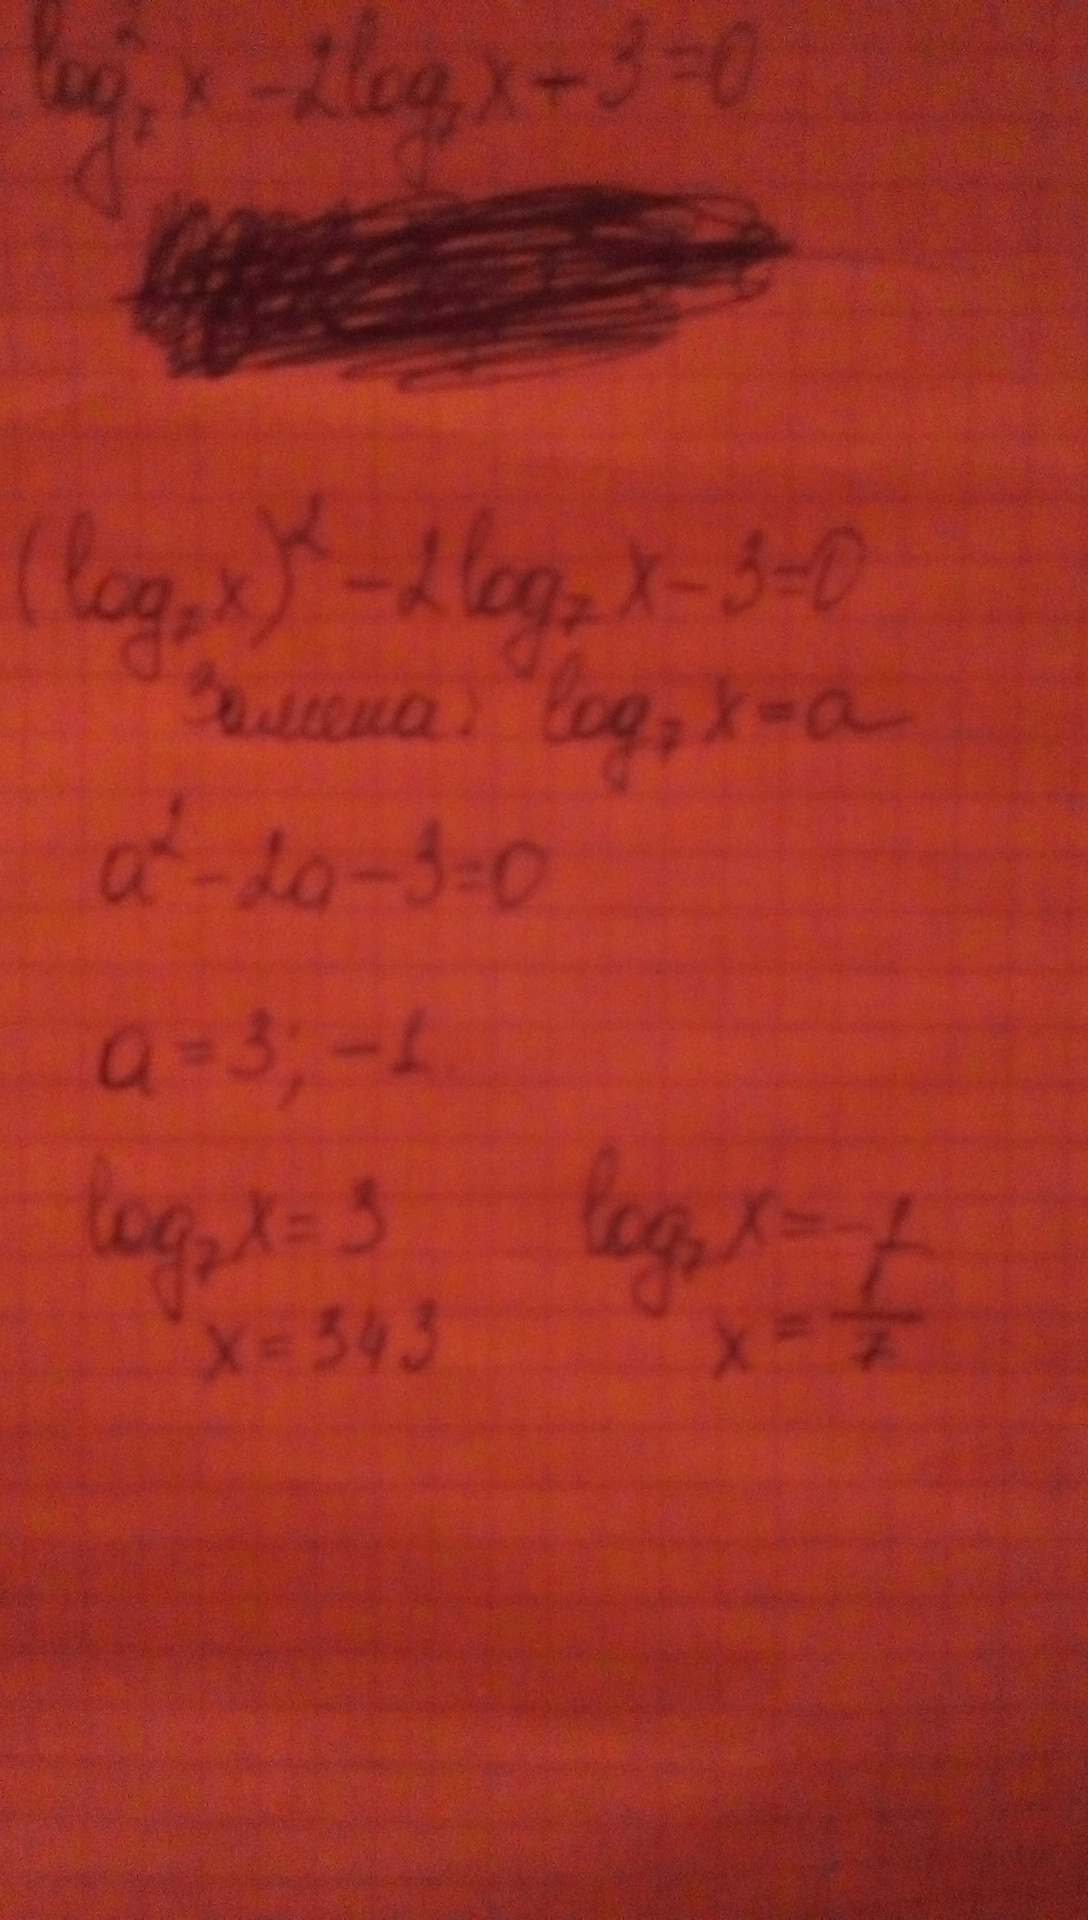 log₇² x - 2log₇ x + 3 = 0
(log₇ x)² - 2log₇ x - 3 = 0
Замена: log₇ x = a
a² - 2a - 3 = 0
a = 3; -1
log₇ x = 3 log₇ x = -1
x = 343 x = 1/7